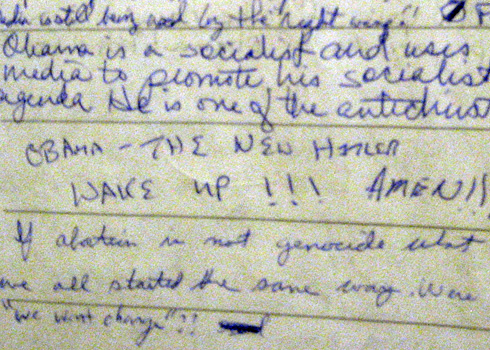 being used by the right wing!!
Obama is a socialist and uses
media to promote his socialist
agenda He is one of the antichrist
OBAMA - THE NEW HITLER
WAKE UP !!! AMEN!!
If abortion is not genocide what
we all started the same way. Were
"we want change"??